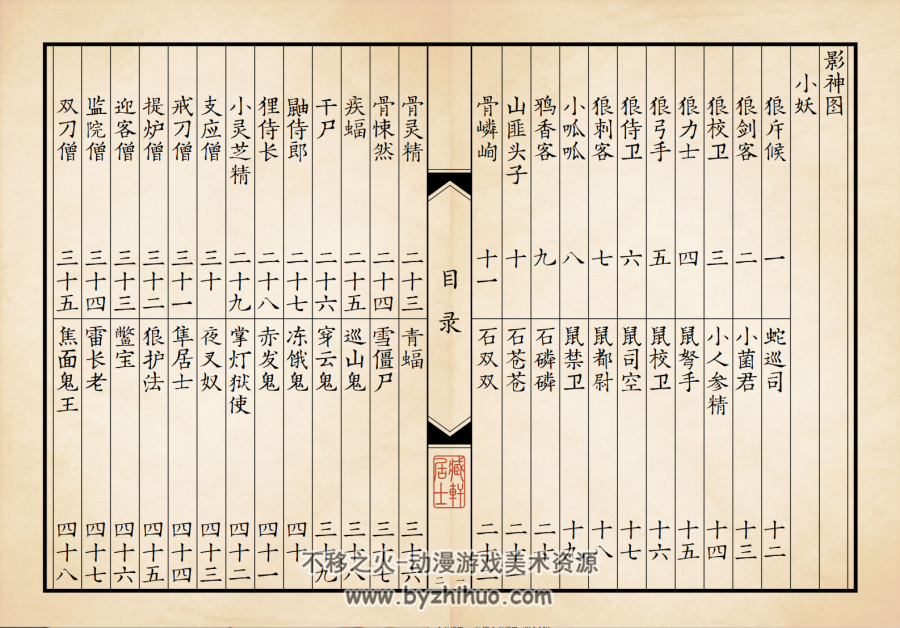 影神图
小妖
狼斥候 一
狼剑客 二
狼校卫 三
狼力士 四
狼弓手 五
狼侍卫 六
狼刺客 七
小呱呱 八
鸦香客 九
山匪头子 十
骨嶙峋 十一
蛇巡司 十二
小菌君 十三
小人参精 十四
鼠弩手 十五
鼠校卫 十六
鼠司空 十七
鼠都尉 十八
鼠禁卫 十九
石磷磷 二十
石苍苍 二十一
石双双 二十二
目录
軒
居士
一
二
骨灵精 二十三
骨悚然 二十四
疾蝠 二十五
干尸 二十六
鼬侍郎 二十七
狸侍长 二十八
小灵芝精 二十九
支应僧 三十
戒刀僧 三十一
提炉僧 三十二
迎客僧 三十三
监院僧 三十四
双刀僧 三十五
青蝠 三十六
雪僵尸 三十七
巡山鬼 三十八
穿云鬼 三十九
冻饿鬼 四十
赤发鬼 四十一
掌灯狱使 四十二
夜叉奴 四十三
隼居士 四十四
狼护法 四十五
鳖宝 四十六
雷长老 四十七
焦面鬼王 四十八
不移之火-动漫游戏美术资源
www.byzhihuo.com